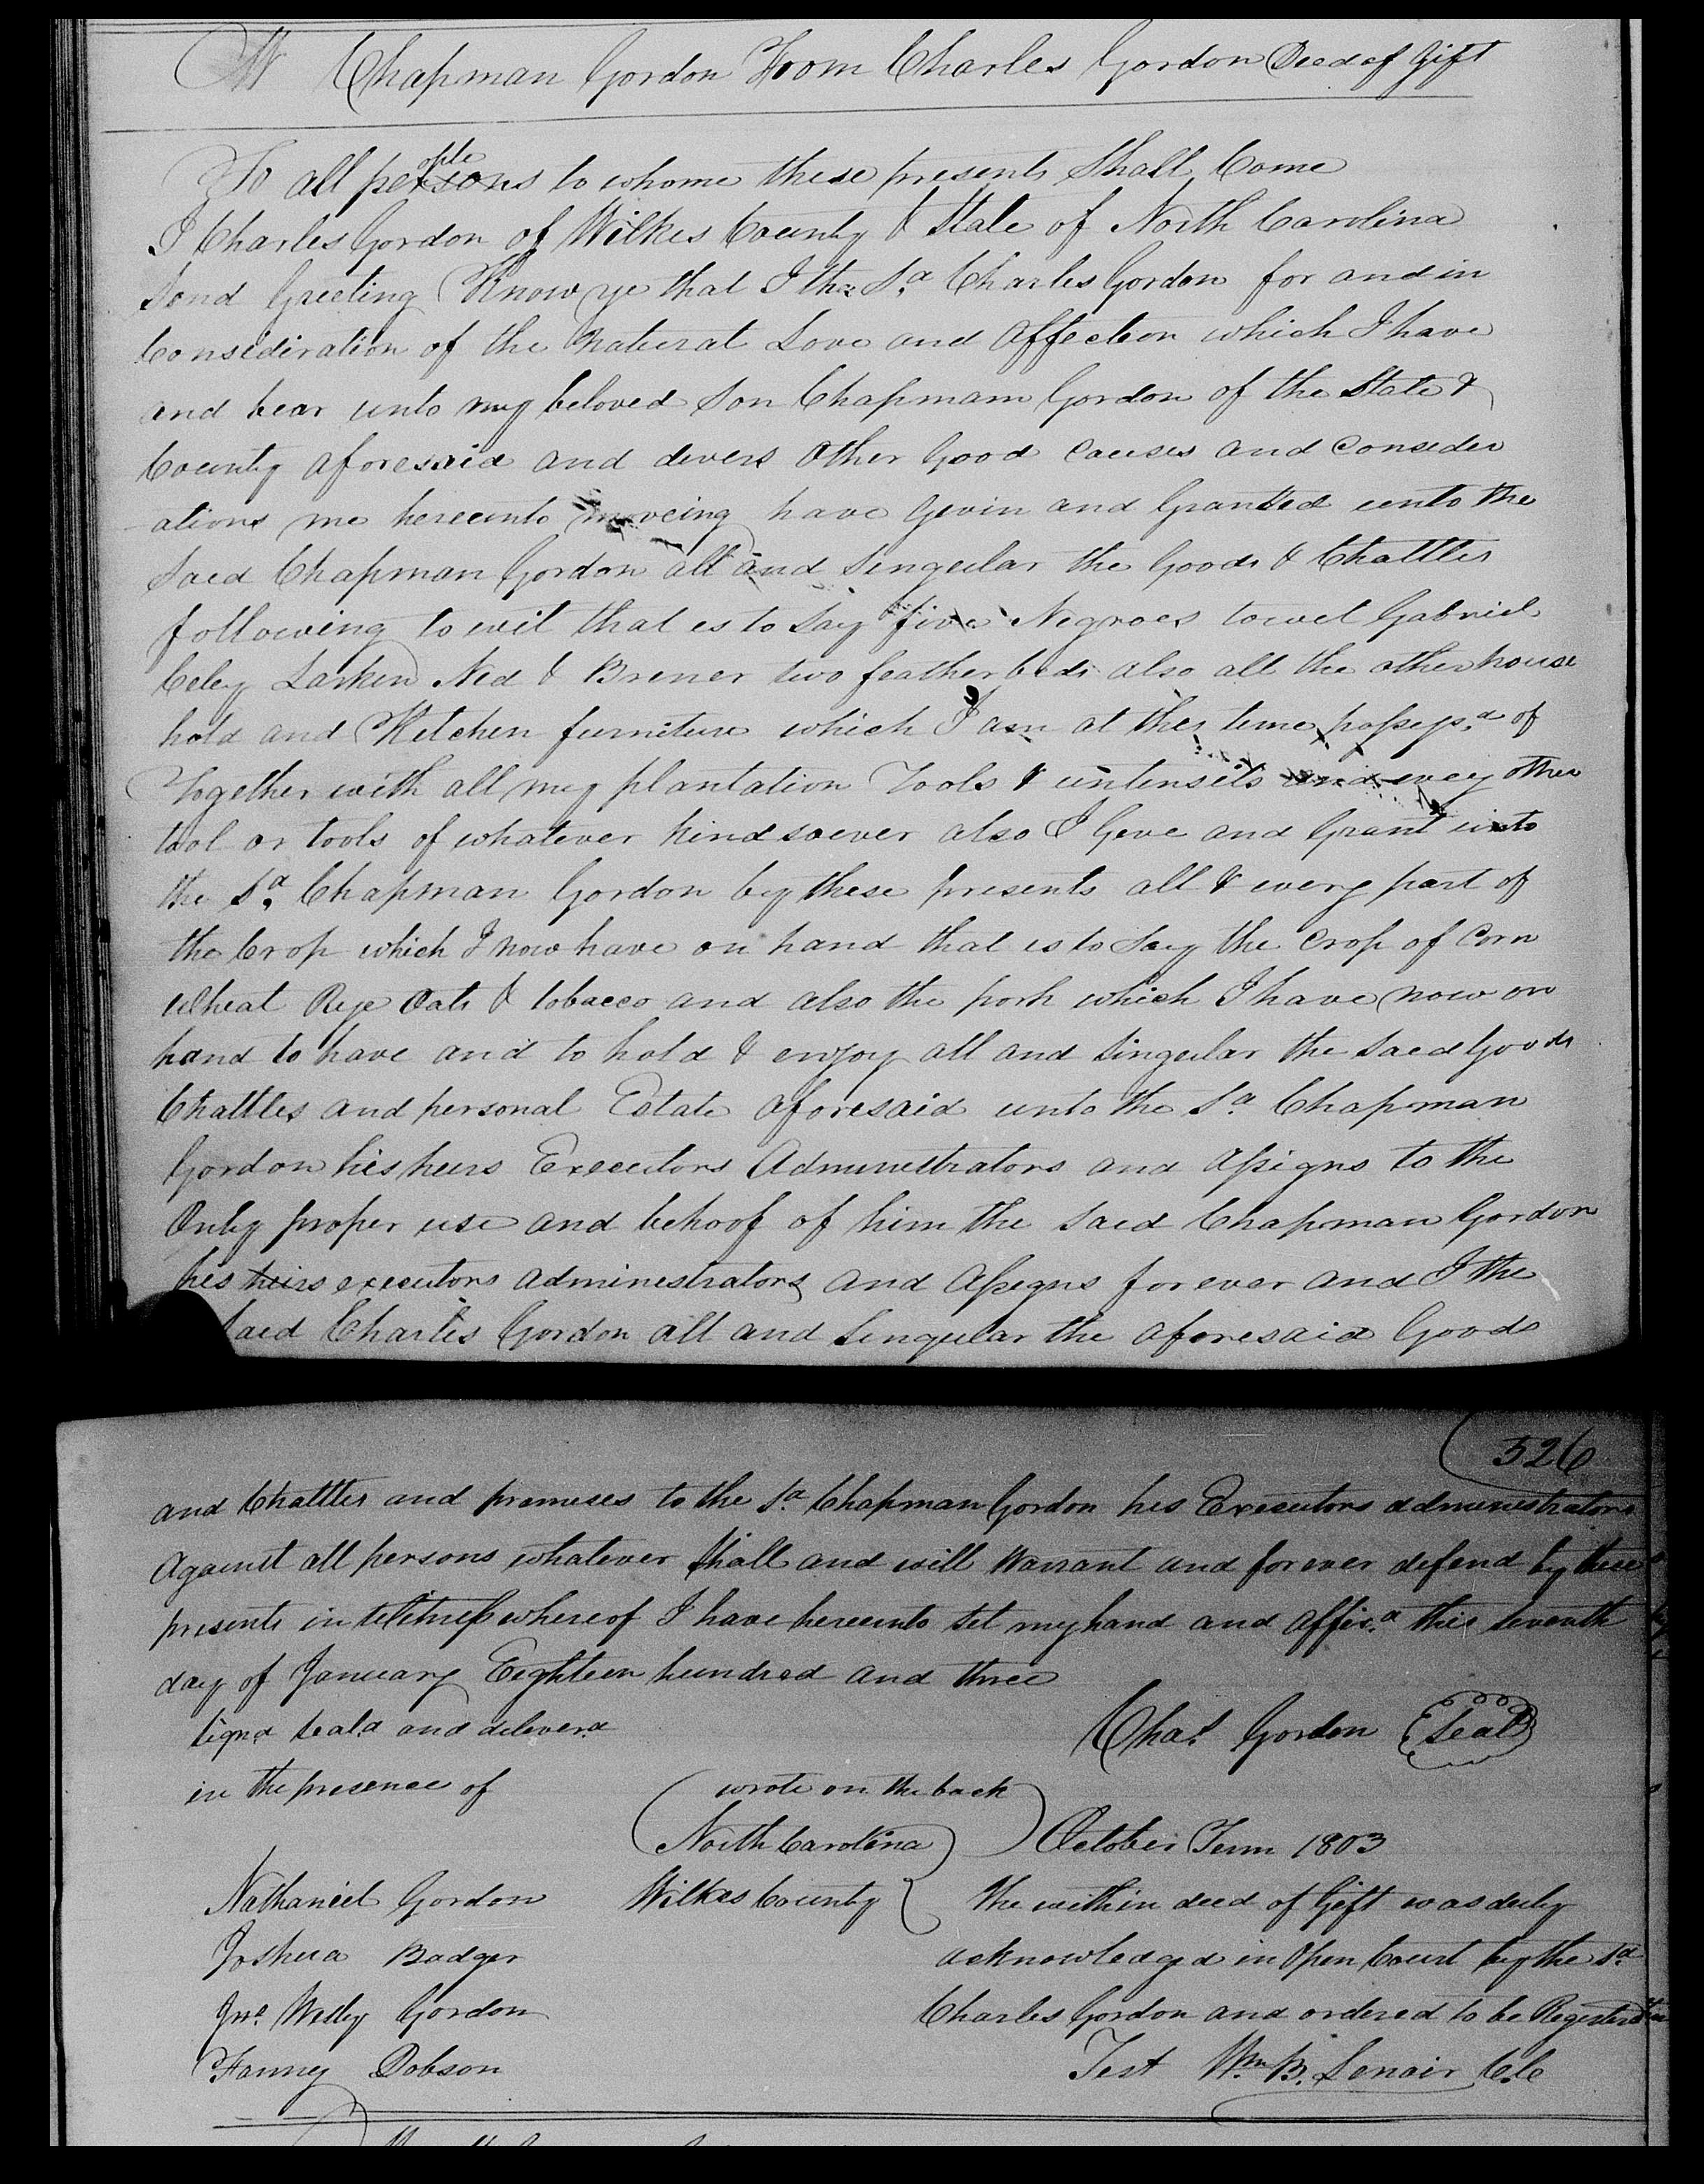 Chapman Gordon From Charles Gordon Deed of Gift
To all persons ople to whome these presents Shall Come
I Charles Gordon of Wilkes County & State of North Carolina
Send Greeting Know ye that I the Sd Charles Gordon for and in
Consideration of the Natural Love and Affection which I have
and bear unto my beloved Son Chapmam Gordon of the State &
County aforesaid and divers Other Good Causes and Consider
ations me hereunto moveing have Givin and Granted unto the
Said Chapman Gordon all and Singular the Goods & Chattles
following to wit that is to Say five Negroes towit Gabriel
Celey Larkin Ned & Brener two feather beds also all the other house
hold and Kitchen furniture which I am at this time possess.d of
Together with all my plantation Tools & untensils and evey other
tool or tools of whatever kind soever also I Give and Grant unto
the Sd Chapman Gordon by these presents all & every part of
the Crop which I now have on hand that is to Say the Crop of Corn
Wheat Rye Oats & tobacco and also the pork which I have now on
hand to have and to hold & enjoy all and Singular the Said Goods
Chattles and personal Estate aforesaid unto the Sd Chapman
Gordon his heirs Executors Administrators and Assigns to the
Only proper use and behoof of him the Said Chapman Gordon
his heirs executors administrators and Assigns forever and I the
Said Charles Gordon all and Singular the aforesaid Goods
326
and Chattles and premises to the Sd Chapman Gordon his Executors administrators
Against all persons whatever Shall and will Warrant and forever defend by these
presents in Witness whereof I have hereunto Set my hand and Affix.d this Seventh
day of January Eighteen hundred and three
Signd Seald and deliverd
Chas. Gordon Seal
in the presence of
wrote on the back
North Carolina October Term 1803
Nathaniel Gordon Wilkes County The within deed of Gift was duly
Joshua Badger acknowledgd in Open Court by the Sd
Jno. Wesley Gordon Charles Gordon and ordered to be Registerd
Fanney Dobson Test Wm. B. Lenoir C.C